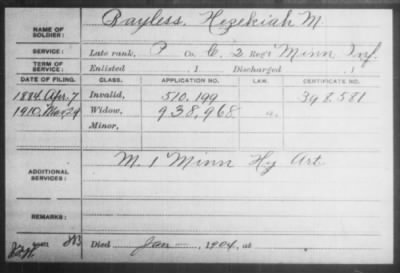 NAME OF SOLDIER: Rayless, Hezekiah M.
SERVICE: Late rank, P Co. C, 2 Reg't Minn Inf.
TERM OF SERVICE: Enlisted , 1 Discharged , 1
DATE OF FILING. CLASS. APPLICATION NO. LAW. CERTIFICATE NO.
1884 Apr. 7 Invalid, 510.199 398.581
1910 Mar 29 Widow, 938,968
Minor,
ADDITIONAL SERVICES: M. 1 Minn Hy Art
REMARKS:
Died Jan , 1904, at